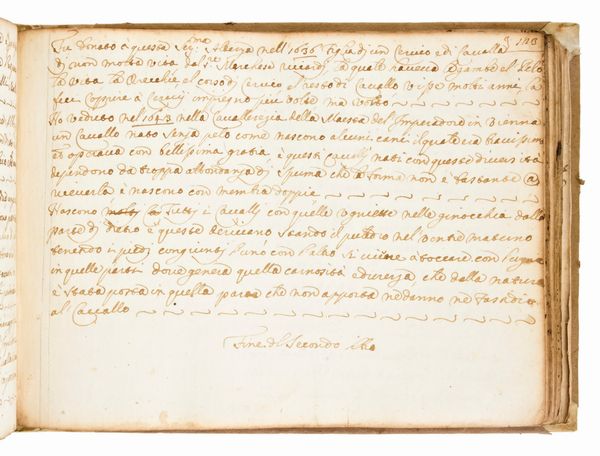 123
Fu donato à questa Ser.ma Altezza nell 1636 figlia di un Cervio e di Cavalla
di non molta vita dal Sre Marchese Riccardi, la quale haveva le gambe el pelo
la vita la orecchie el corso di Cervio el resto di Cavallo visse molti anni, la
feci coprire à impregno piu volte ma
Ho veduto nel 1643 nella Cavalleriza della Maestà del Imperadore in Vienna
un Cavallo nato senza pelo come nascono alcuni cani il quale era bravissimo
et operava con bellissima gratia è questi cavalli nati con queste diversità
dependono da troppa abondanza di Spuma che la forma non è bastante @
riceverla è nascono con membra doppie
Nascono molti Tutti i Cavalli con quelle nelle ginochia dalla
parte di dietro è queste derivano stando il puledro nel ventre materno
tenendo i piedi congiunti l'uno con l'altro si viene à toccare con l'ugna
in quelle parti dove genera quella carnosità e durezza che dalla natura
è stata posta in quella parte che non apporta ne danno ne fastidio
al Cavallo
Fine del Secondo libo